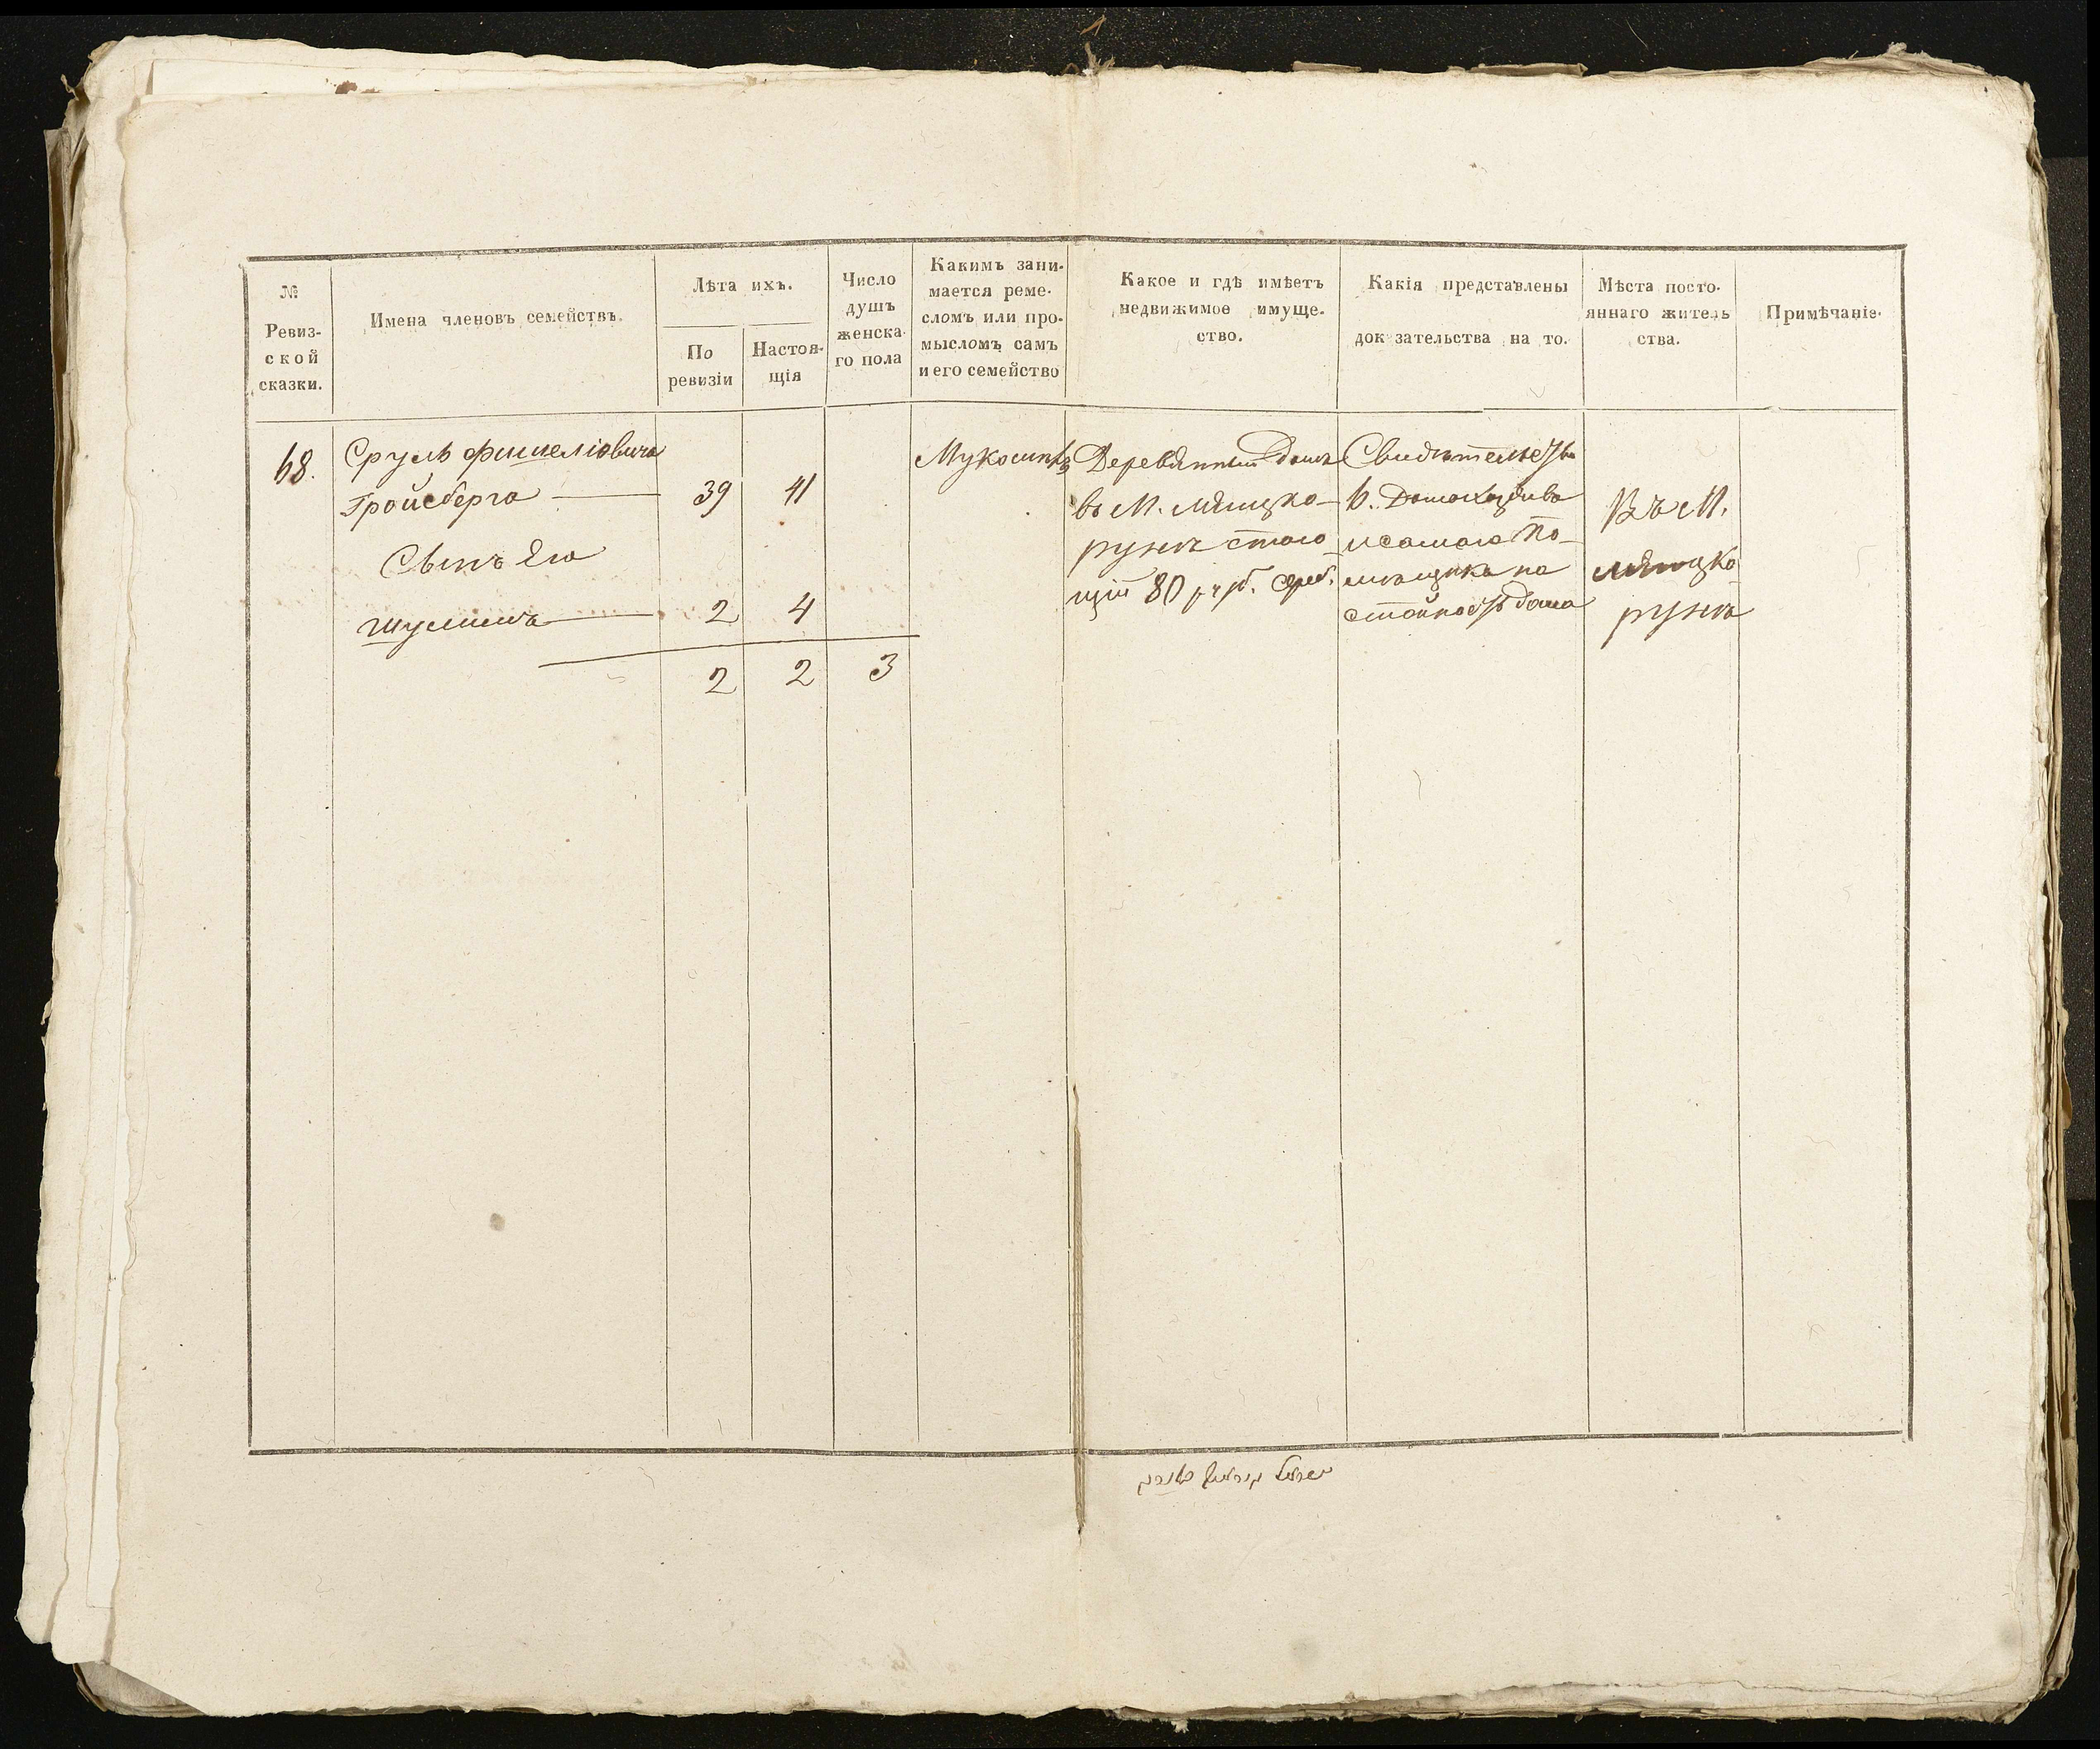 №
Ревиз-
ской
сказки.
Имена членовъ семействъ.
Лѣта ихъ.
По
ревизіи
Настоя-
щія
Число
душъ
женска-
го пола
Какимъ зани-
мается реме-
сломъ или про-
мысломъ самъ
и его семейство
Какое и гдѣ имѣетъ
недвижимое имуще-
ство.
Какія представлены
док зательства на то.
Мѣста посто-
яннаго житель
ства.
Примѣчаніе.
68.
Сруль Фишеліовичъ
Гройсбергъ 39 41
Сынъ Его
Шулимъ 2 4
2 2 3
Деревянный Домъ
въ М. Мянцко-
рунѣ стою
щій 80 руб. сереб.
Свидѣтельство
6.
и самаго По-
мѣщика на
стойность дома
Въ М.
Мянцко
рунѣ